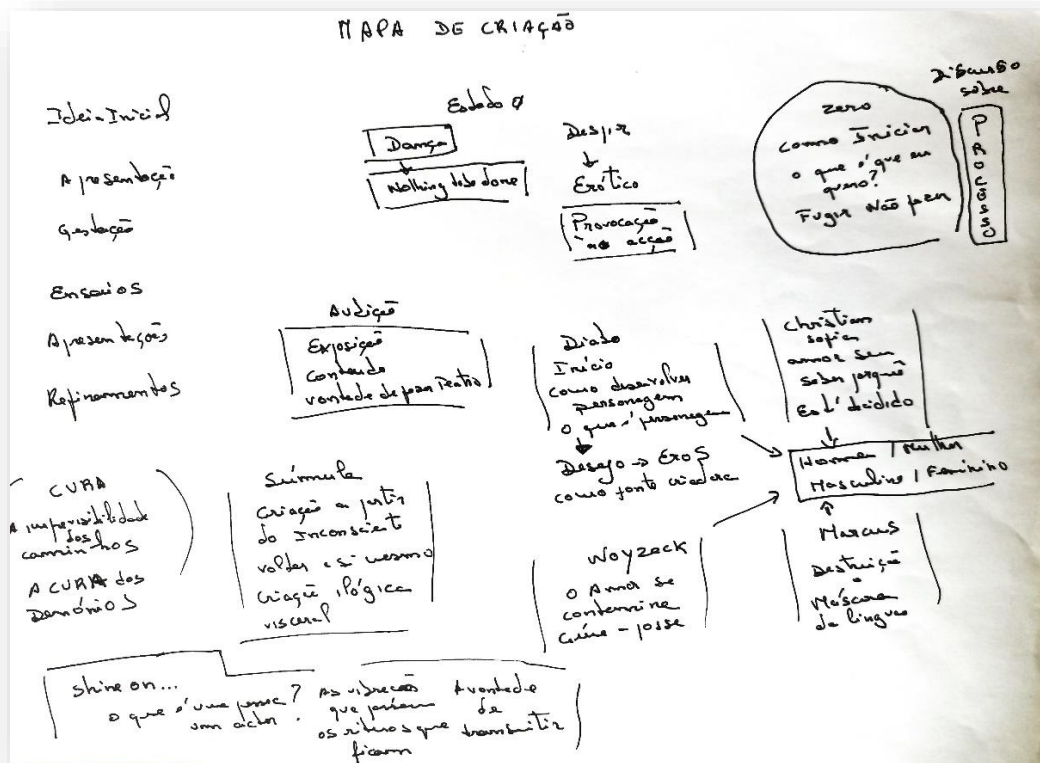 MAPA DE CRIAÇÃO
Ideia Inicial
Apresentação
Gestação
Ensaios
Apresentações
Refinamentos
Estado 0
Dança
Nothing to be done
Despir
Erótico
Provocação
acção
zero
como Iniciar
o que é que eu
quero?
Fugir Não parar
Discussão
sobre
PROCESSO
Audição
Exposição
Contendo
vontade de fazer Teatro
Diabo
Início
como desenvolver
personagem
o que é personagem
Desejo → EROS
como fonte criadora
Christian
Sofia
amor sem
saber porquê
Está decidido
Homem / Mulher
Masculino / Feminino
CURA
A imprevisibilidade
dos
caminhos
A CURA dos
Demónios
Súmula
Criação a partir
do Inconsciente
voltar a si mesmo
Criação ilógica
visceral
Woyzeck
o Amor se
contamina
Ciúme - posse
Marcus
Destruição
Máscara
da língua
Shine on...
o que é uma pessoa?
um actor.
As vibrações
que
os ritmos que
ficam
A vontade
de
transmitir